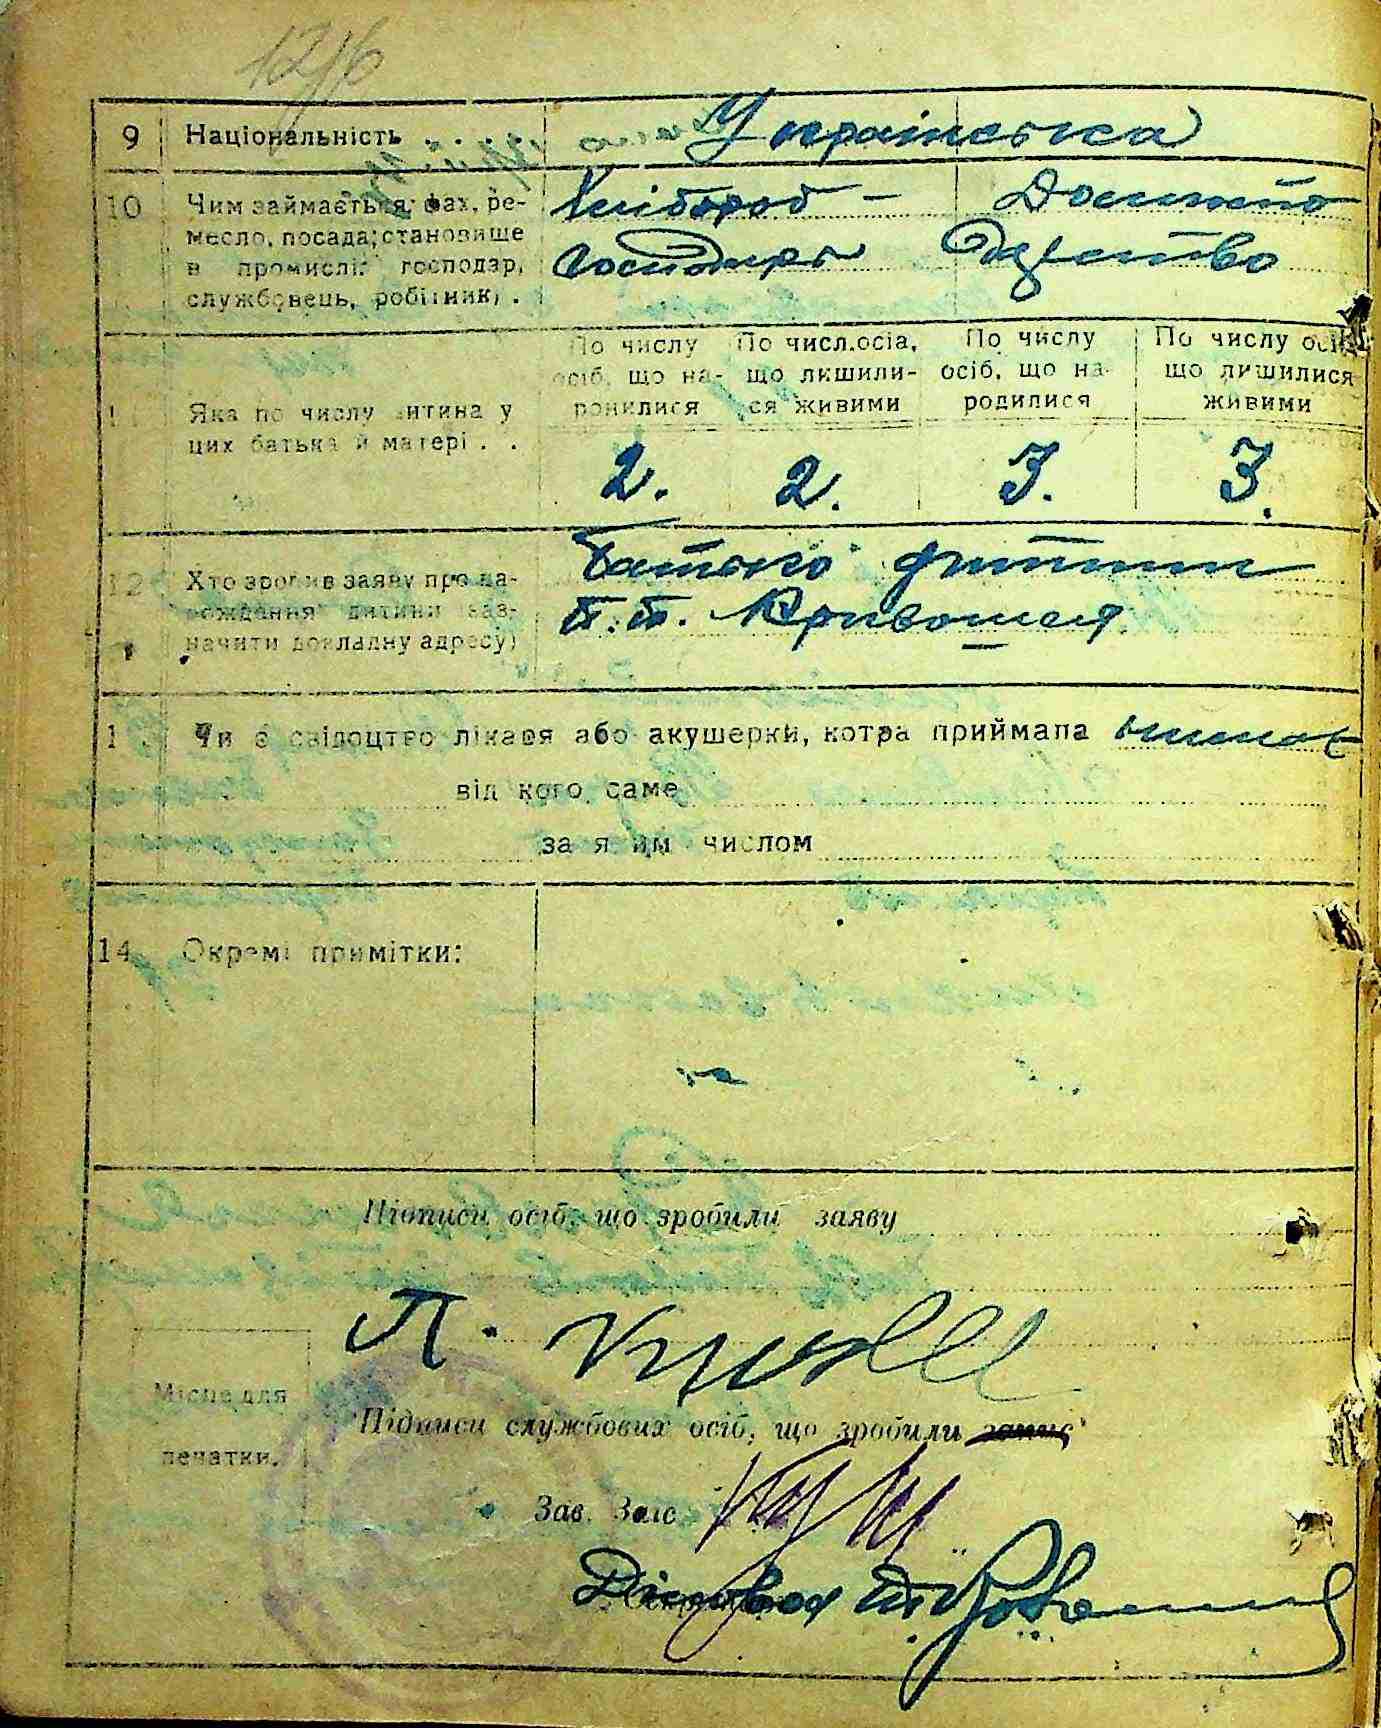 12/6
9 Національність Українська
10 Чим займається: фах, ре-
месло, посада; становище
в промислі: господар,
службовець, робітник).
Хлібороб –
господарь
Домашнє
По числу осіб, що на-
родилися
По числ. осіб,
що лишили-
ся живими
По числу
осіб, що на-
родилися
По числу осіб
що лишилися
живими
1 Яка по числу дитина у
цих батька й матері . .
2. 2. 3. 3.
12 Хто зробив заяву про на-
рождання дитини (заз-
начити докладну адресу)
Батько дитини
П. П. Кривошея
1 Чи є свідоцтво лікаря або акушерки, котра приймала немає
від кого саме
за яким числом
14 Окремі примітки:
Підписи осіб, що зробили заяву
П. Криво
Місце для
печатки.
Підписи службових осіб, що зробили запис
Зав. Загс
Діловод